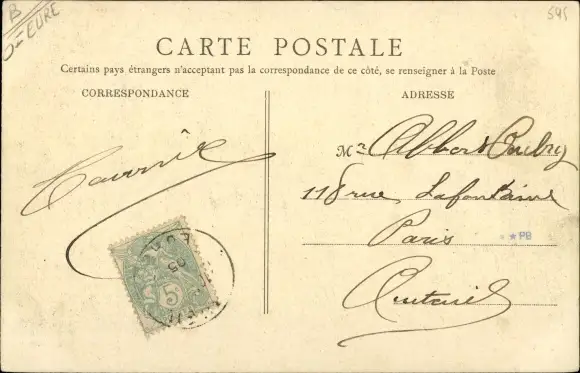 B
EURE
545
CARTE POSTALE
Certains pays étrangers n'acceptant pas la correspondance de ce côté, se renseigner à la Poste
CORRESPONDANCE
ADRESSE
Mr Albert Aubry
118 rue Lafontaine
Paris
Auteuil
★PB
5
05